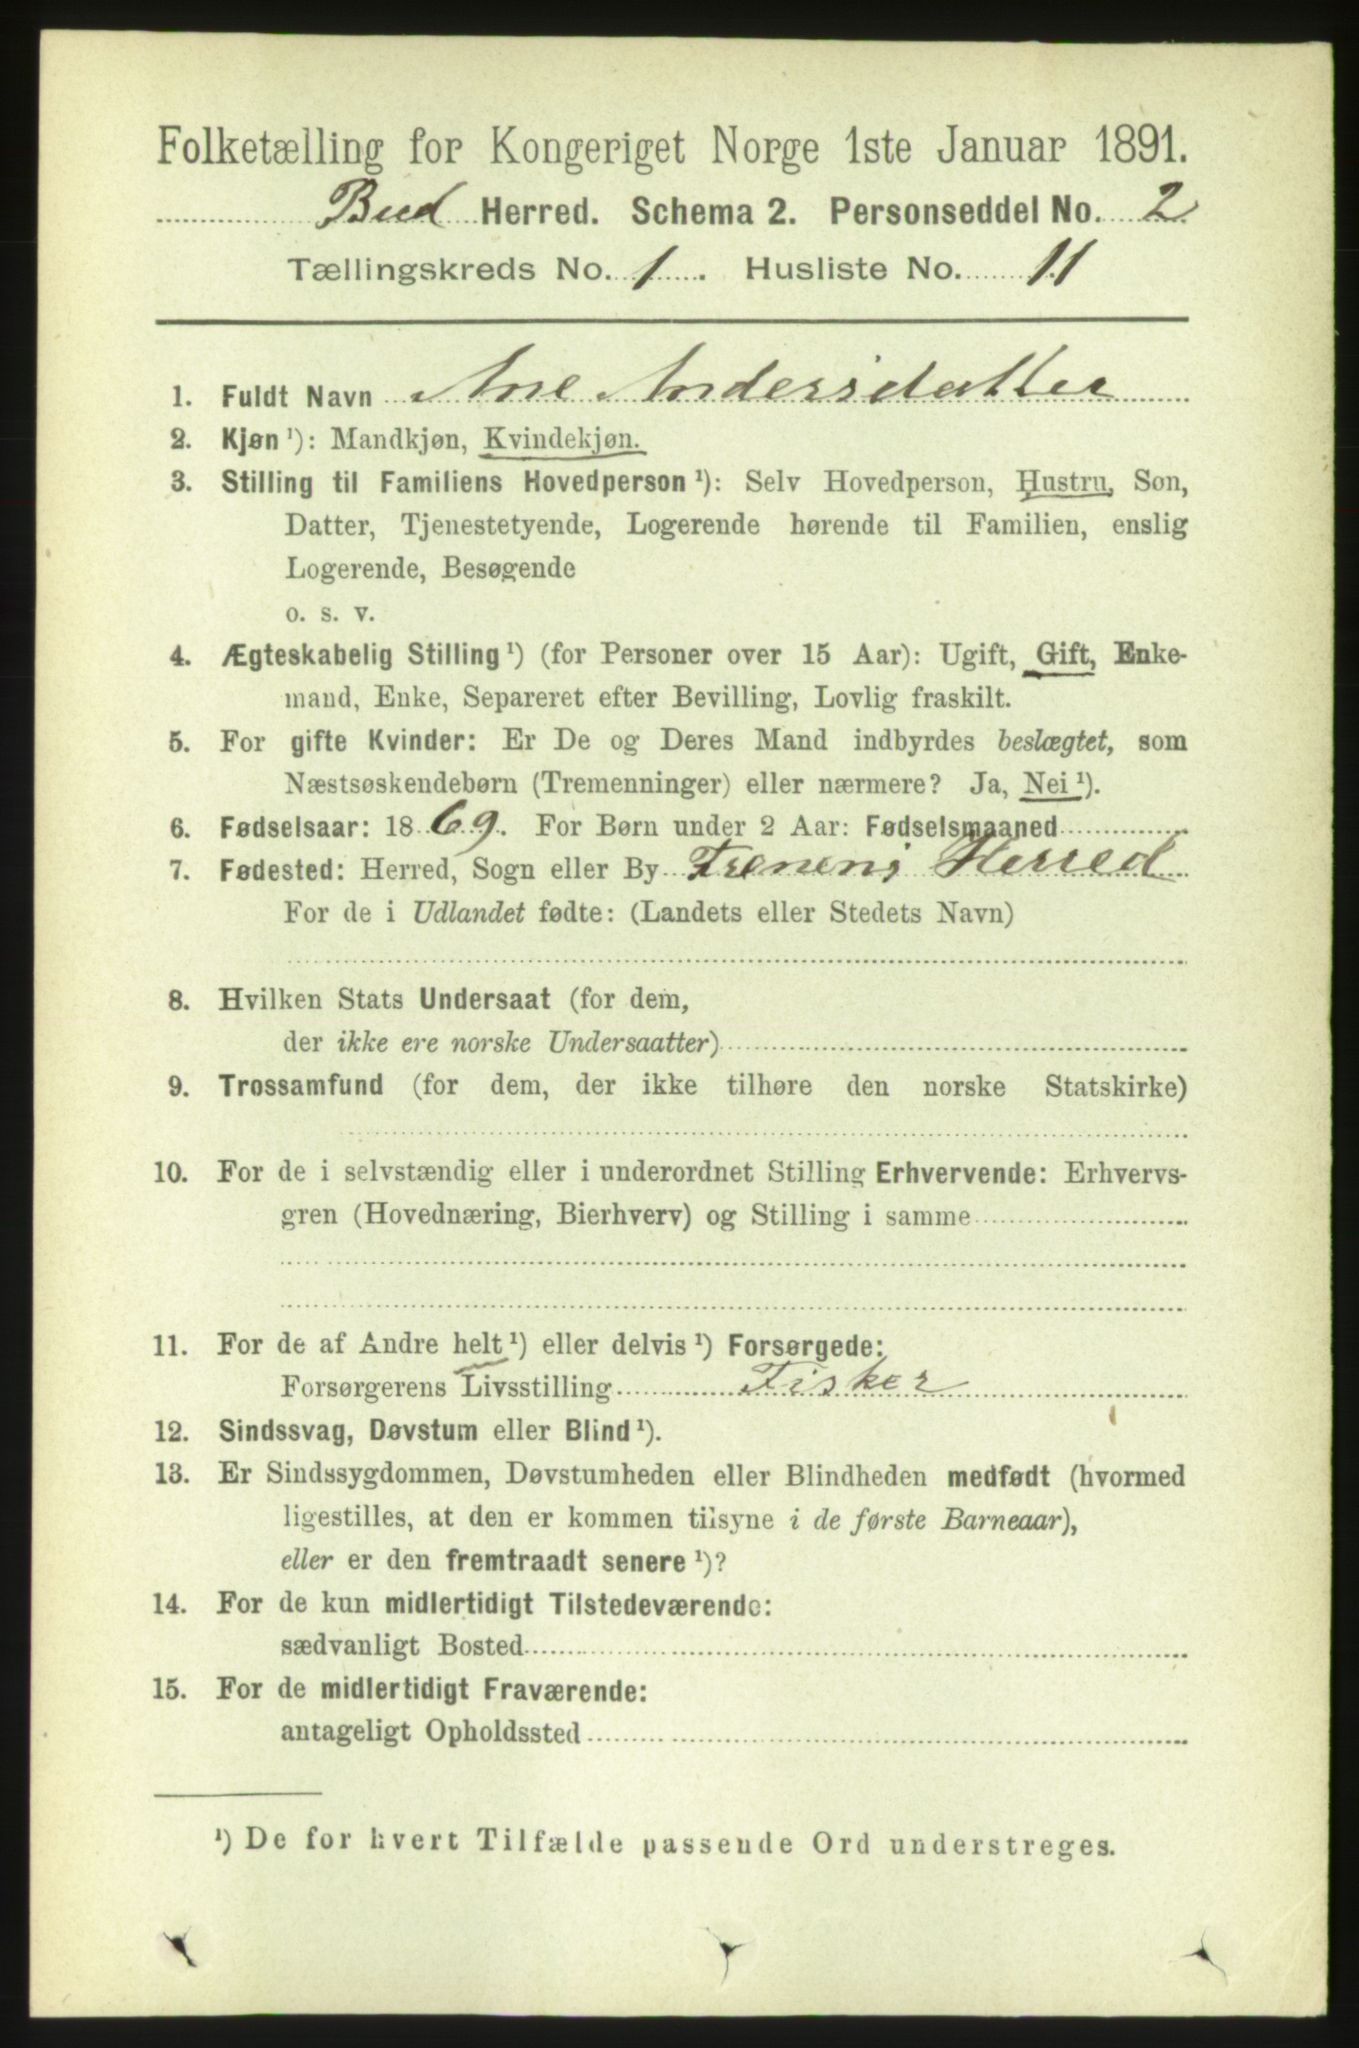 Folketælling for Kongeriget Norge 1ste Januar 1891.
Bud Herred. Schema 2. Personseddel No. 2
Tællingskreds No. 1. Husliste No. 11
1. Fuldt Navn Ane Andersdatter
2. Kjøn ¹): Mandkjøn, Kvindekjøn.
3. Stilling til Familiens Hovedperson ¹): Selv Hovedperson, Hustru, Søn,
Datter, Tjenestetyende, Logerende hørende til Familien, enslig
Logerende, Besøgende
o. s. v.
4. Ægteskabelig Stilling ¹) (for Personer over 15 Aar): Ugift, Gift, Enke-
mand, Enke, Separeret efter Bevilling, Lovlig fraskilt.
5. For gifte Kvinder: Er De og Deres Mand indbyrdes beslægtet, som
Næstsøskendebørn (Tremenninger) eller nærmere? Ja, Nei ¹).
6. Fødselsaar: 1869. For Børn under 2 Aar: Fødselsmaaned
7. Fødested: Herred, Sogn eller By Frenens Herred
For de i Udlandet fødte: (Landets eller Stedets Navn)
8. Hvilken Stats Undersaat (for dem,
der ikke ere norske Undersaatter)
9. Trossamfund (for dem, der ikke tilhøre den norske Statskirke)
10. For de i selvstændig eller i underordnet Stilling Erhvervende: Erhvervs-
gren (Hovednæring, Bierhverv) og Stilling i samme
11. For de af Andre helt ¹) eller delvis ¹) Forsørgede:
Forsørgerens Livsstilling Fisker
12. Sindssvag, Døvstum eller Blind ¹).
13. Er Sindssygdommen, Døvstumheden eller Blindheden medfødt (hvormed
ligestilles, at den er kommen tilsyne i de første Barneaar),
eller er den fremtraadt senere ¹)?
14. For de kun midlertidigt Tilstedeværende:
sædvanligt Bosted
15. For de midlertidigt Fraværende:
antageligt Opholdssted
¹) De for hvert Tilfælde passende Ord understreges.